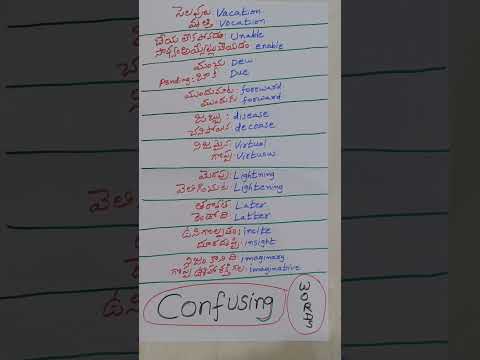 సెలవులు: Vacation
వృత్తి Vocation
చేయ లేకపోవడం: Unable
సాధ్యం అయ్యేట్లు చేయడం enable
మంచు Dew
Pending: బాకీ Due
ముందుమాట: foreword
ముందుకు forward
జబ్బు : disease
చనిపోయిన decease
నిజమైన Virtual
గొప్ప: Virtuous
మెరుపు: Lightning
వెలిగించుట: Lightening
తరువాత Later
రెండోది: Latter
ఉసిగొల్పడం: incite
దూరదృష్టి: insight
నిజం కానిది: imaginary
గొప్ప ఊహాశక్తిగల: imaginative
Confusing
words